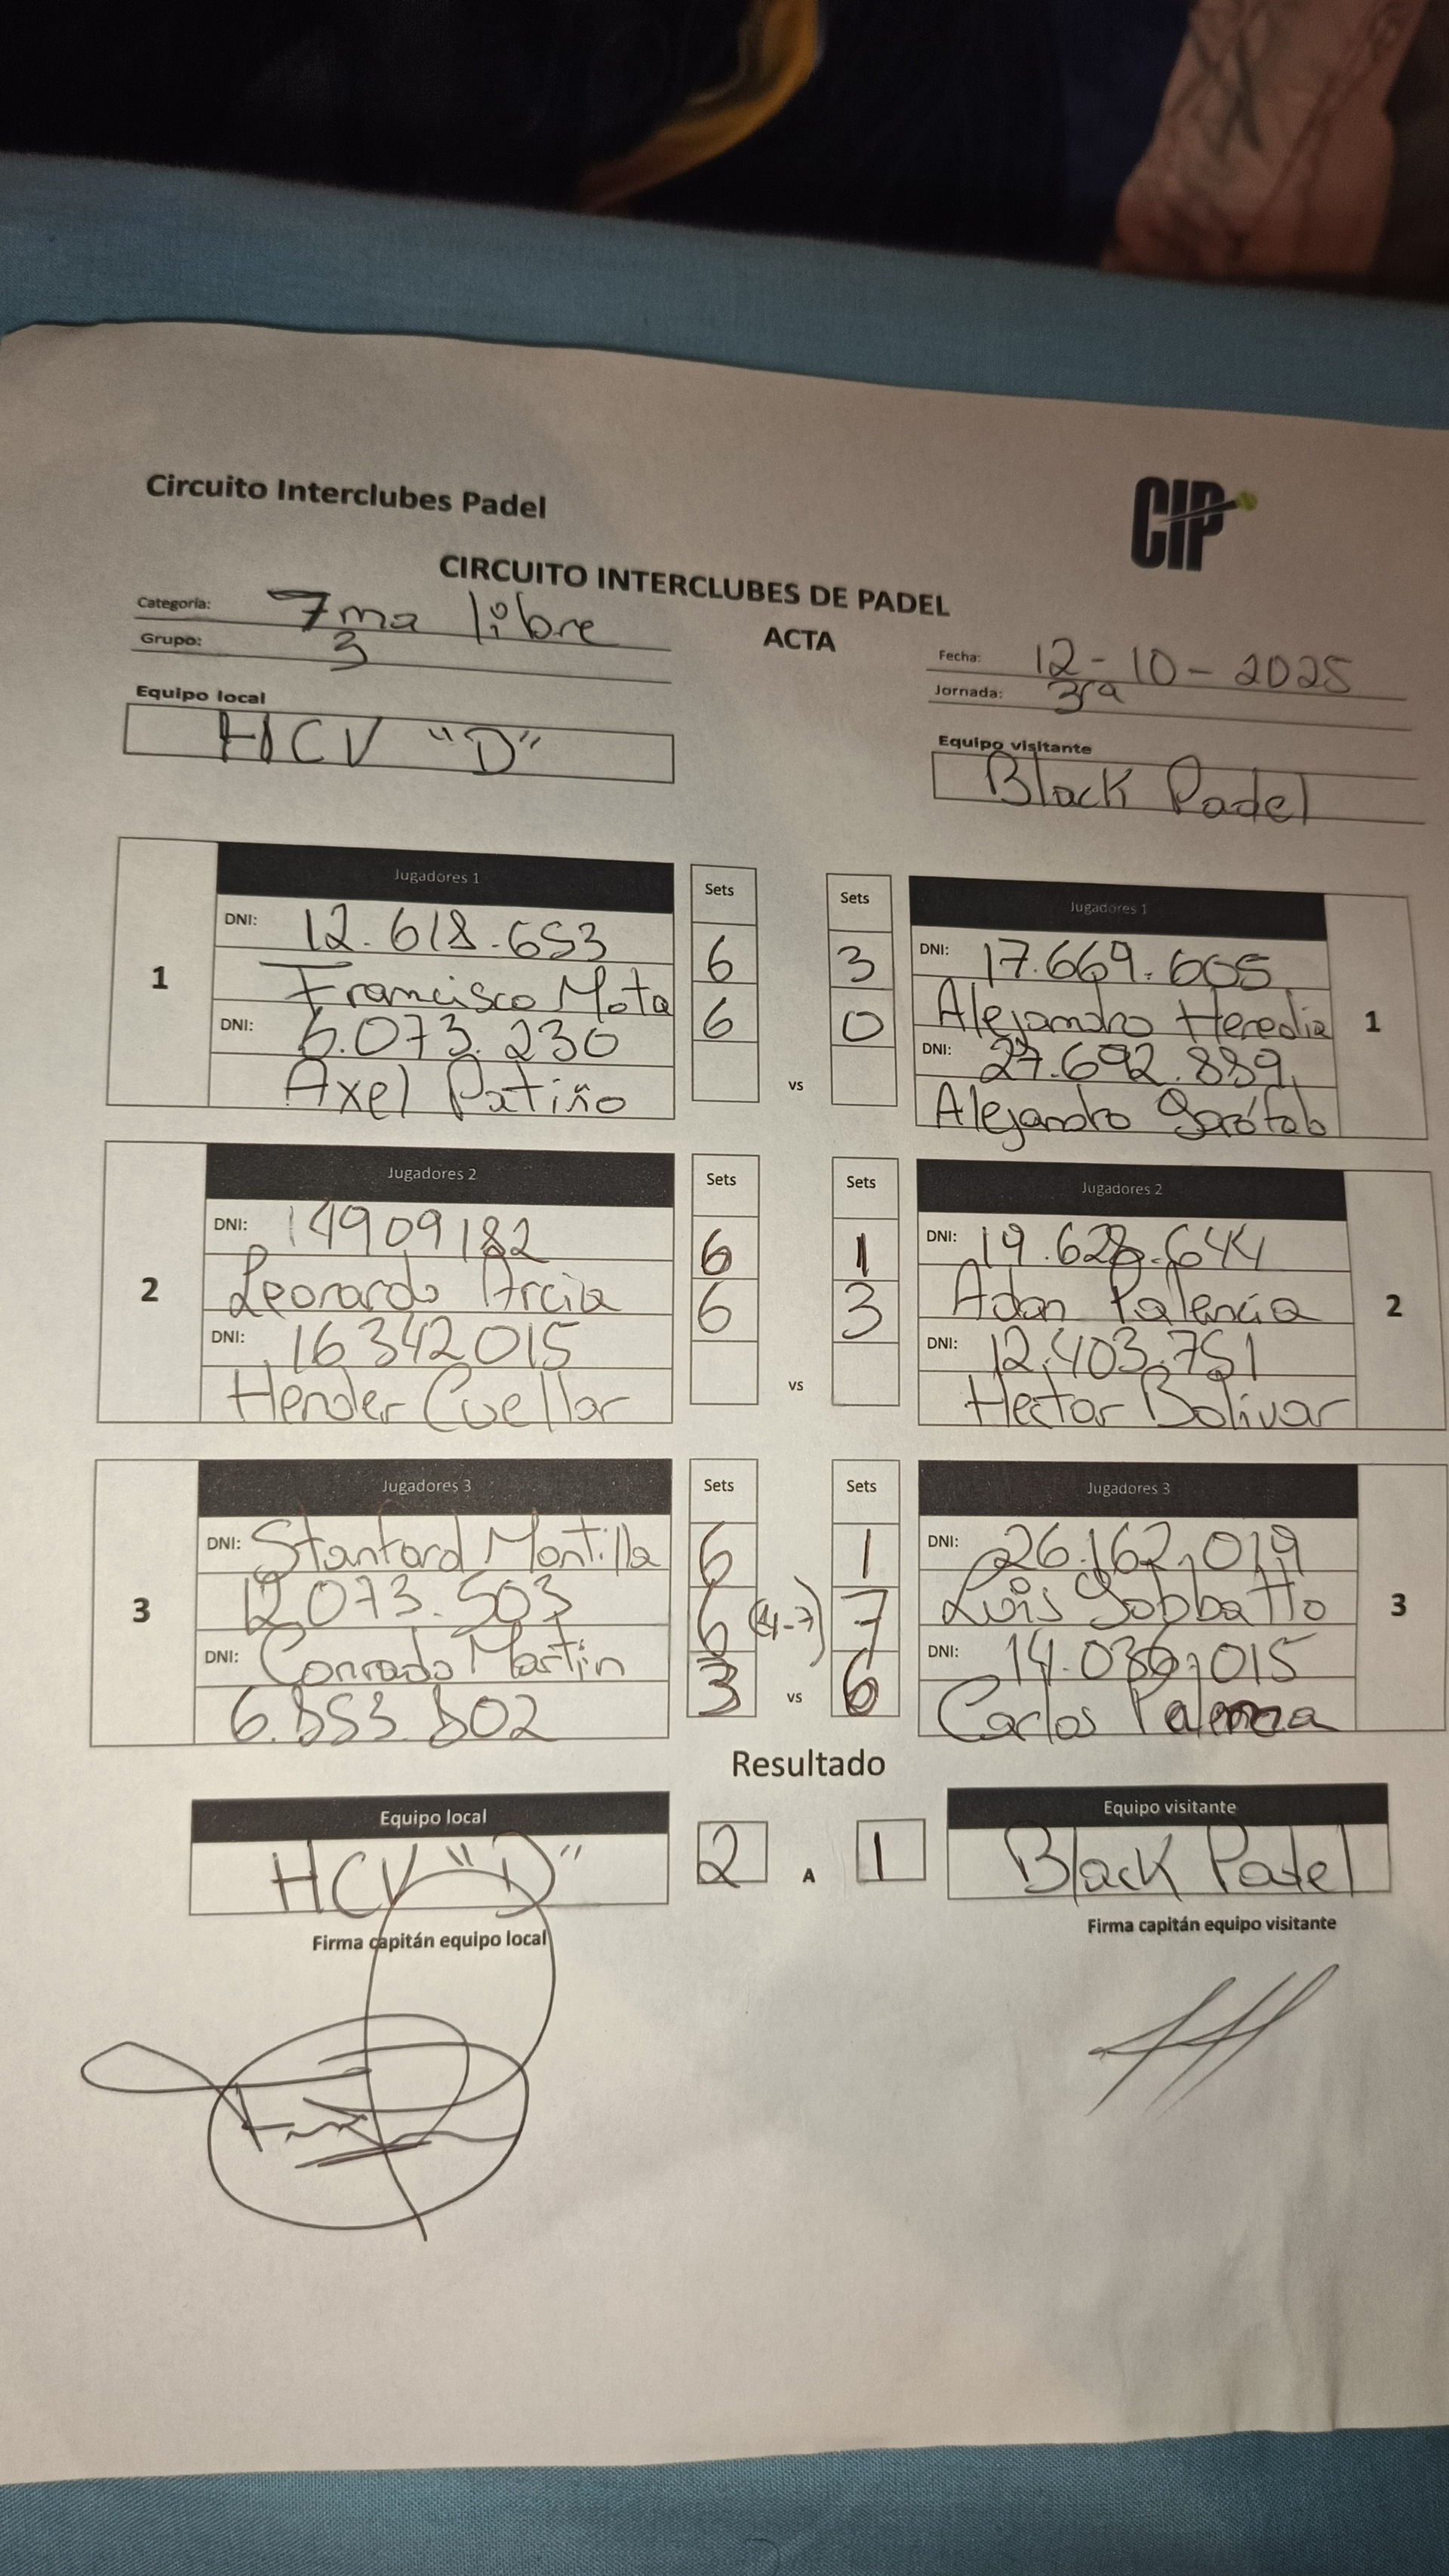 Circuito Interclubes Padel
CIP
CIRCUITO INTERCLUBES DE PADEL
ACTA
Categoría: 7ma libre
Grupo: 3
Fecha: 12-10-2025
Jornada: 3ra
Equipo local
HCV "D"
Equipo visitante
Black Padel
1
Jugadores 1
DNI: 12.618.653
Francisco Mota
DNI: 6.073.230
Axel Patiño
Sets
6
6
vs
Sets
3
0
Jugadores 1
DNI: 17.669.605
Alejandro Heredia
DNI: 27.692.889
Alejandro
1
2
Jugadores 2
DNI: 14909182
Leonardo Arcia
DNI: 16342015
Hender Cuellar
Sets
6
6
vs
Sets
1
3
Jugadores 2
DNI: 19.628.644
Adan Palencia
DNI: 12.403.751
Hector Bolivar
2
3
Jugadores 3
DNI: Stanford Montilla
12.073.503
DNI: Conrado Martin
Sets
6
6 (4-7)
3
vs
Sets
1
7
6
Jugadores 3
DNI: 26.162.019
Luis
DNI: 14.036.015
Carlos Palencia
3
Resultado
Equipo local
HCV "D"
2 A 1
Equipo visitante
Black Padel
Firma capitán equipo local
Firma capitán equipo visitante